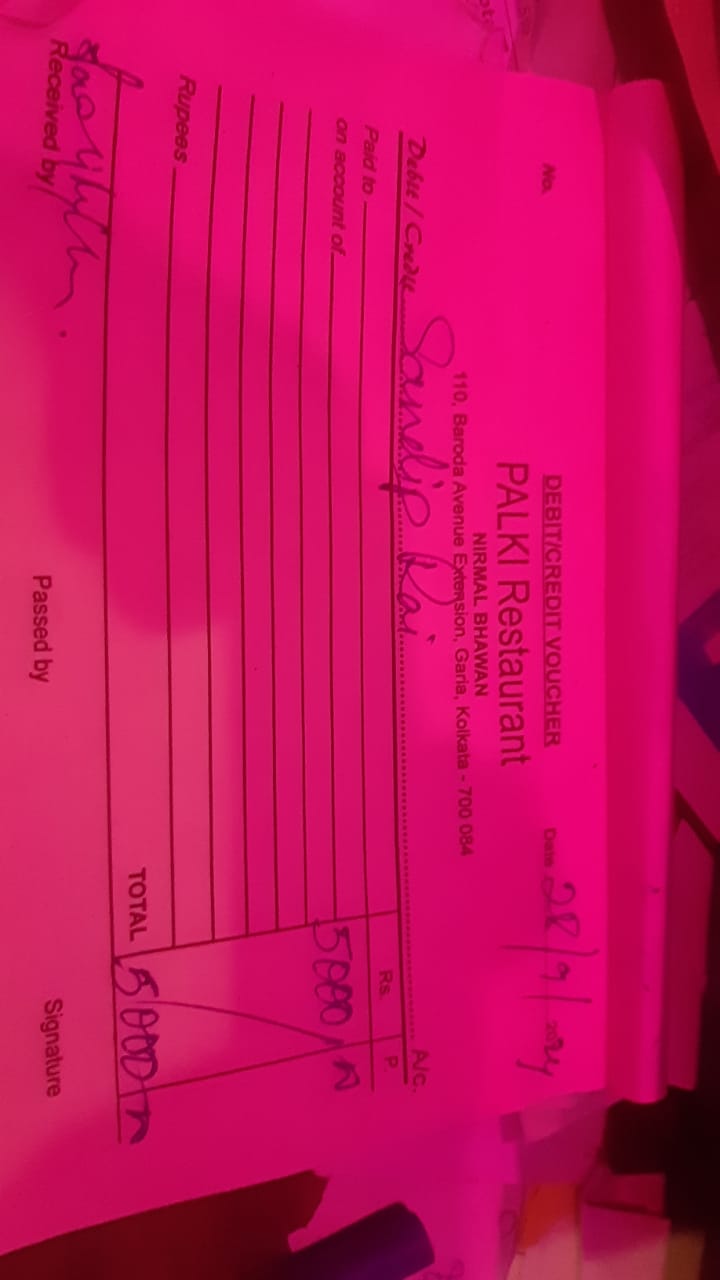 DEBIT/CREDIT VOUCHER
No. Date 28/9/2024
PALKI Restaurant
NIRMAL BHAWAN
110, Baroda Avenue Extension, Garia, Kolkata - 700 084
Debit / Credit Sandip Rai A/c.
Paid to Rs. P.
on account of 5000/-
Rupees
TOTAL 5000/-
Received by Passed by Signature